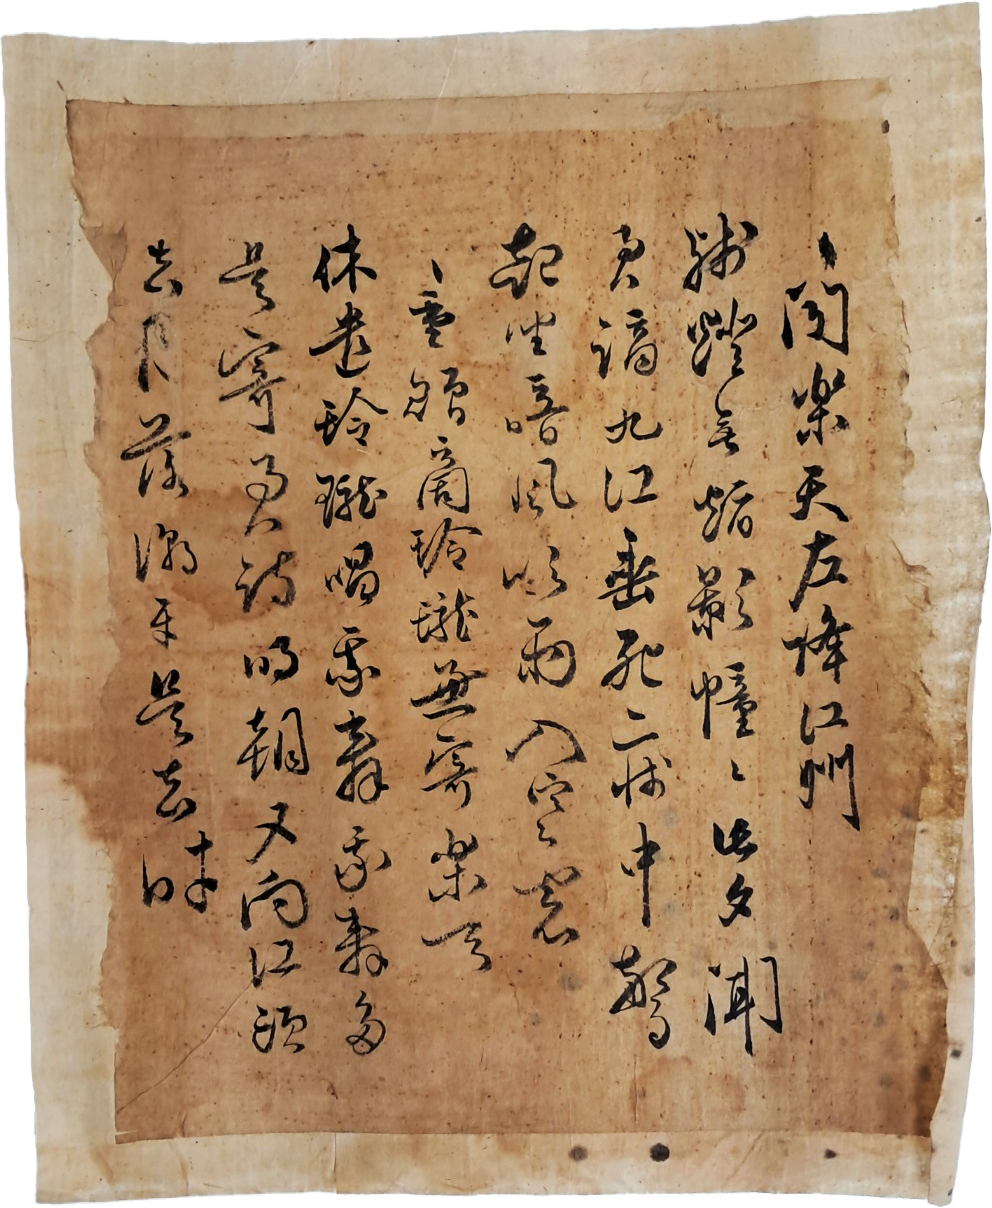 、聞樂天左降江州
残燈無焰影幢々此夕聞
君謫九江垂死病中驚
起坐暗風吹雨入空窓
、重贈商玲瓏兼寄樂天
休遣玲瓏唱我辞我辞多
是寄君詩明朝又向江頭
去月落潮平是去時